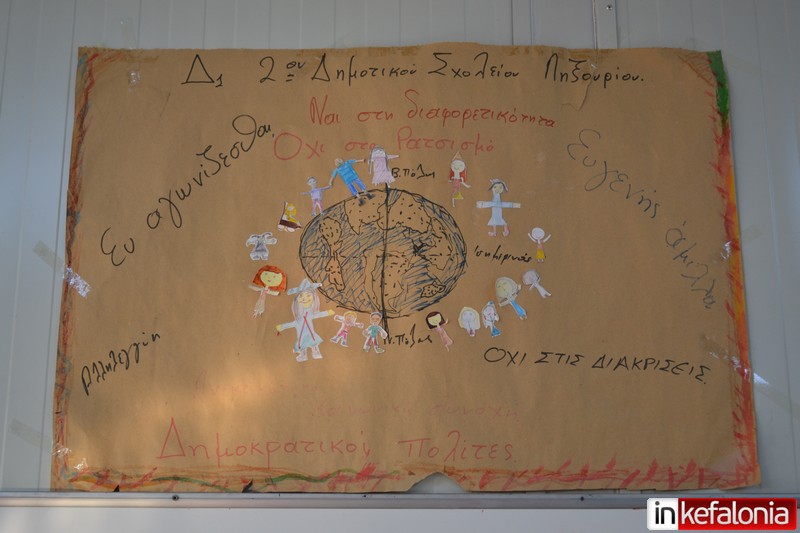 Δ1 2ου Δημοτικού Σχολείου Ληξουρίου.
Ναι στη διαφορετικότητα
Όχι στο Ρατσισμό
Ευ αγωνίζεσθαι
Ευγενής άμιλλα
Β. Πόλος
Ισημερινός
Ν. Πόλος
Αλληλεγγύη
ΟΧΙ ΣΤΙΣ ΔΙΑΚΡΙΣΕΙΣ.
Δημοκρατικοί πολίτες
inkefalonia